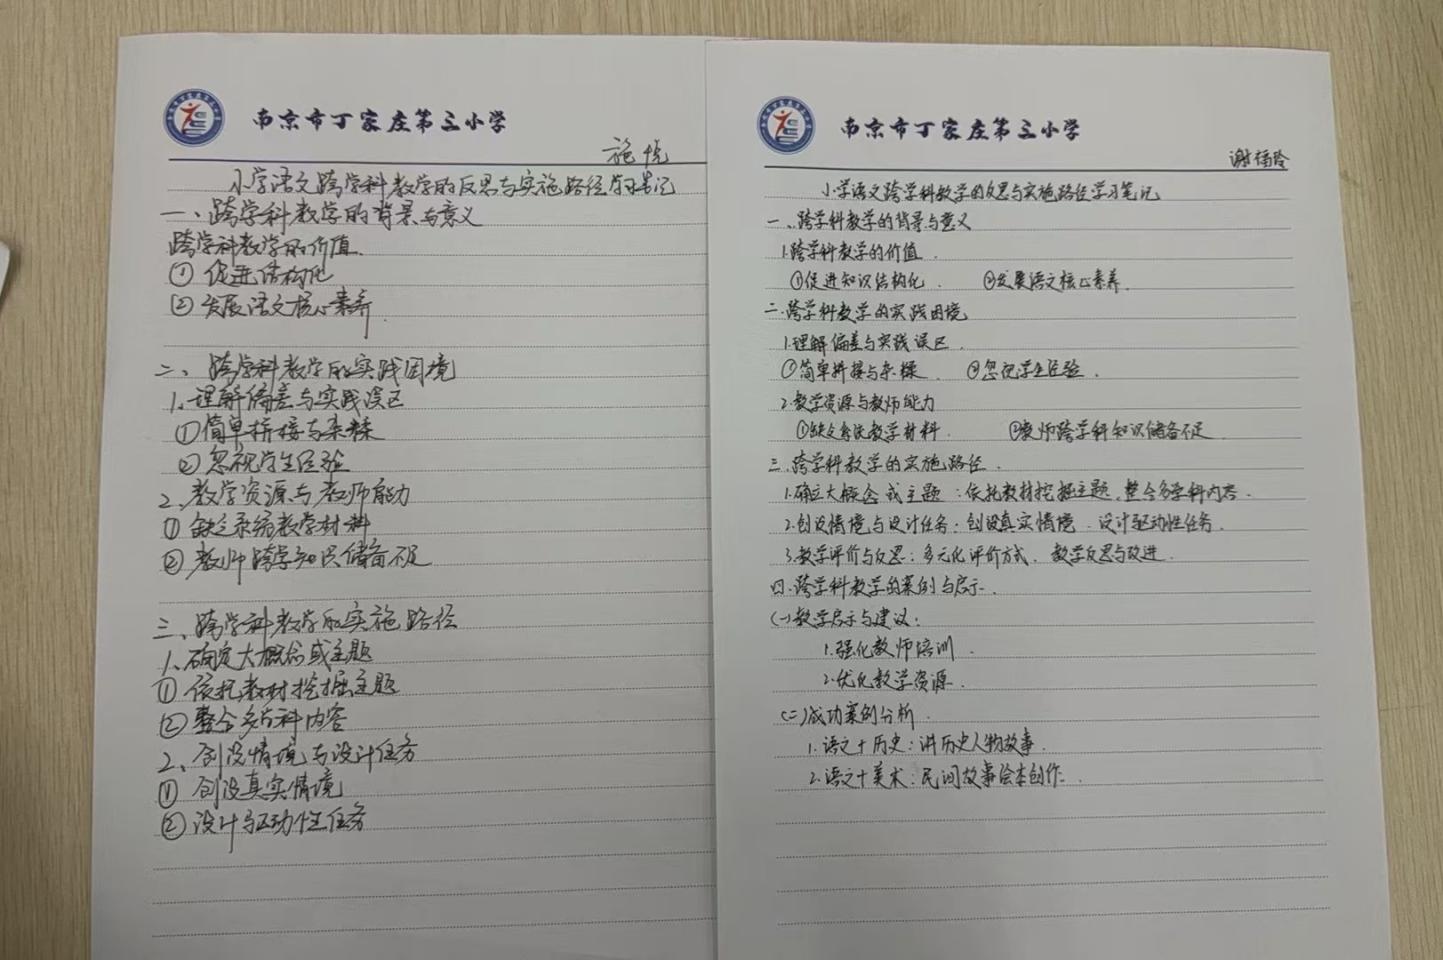 南京市丁家庄第三小学
施悦
小学语文跨学科教学的反思与实施路径学习笔记
一、跨学科教学的背景与意义
跨学科教学的价值.
① 促进结构化
② 发展语文核心素养.
二、跨学科教学的实践困境
1.理解偏差与实践误区
①简单拼接与杂糅
②忽视学生经验
2.教学资源与教师能力
① 缺乏系统教学材料
② 教师跨学知识储备不足
三、跨学科教学的实施路径
1.确定大概念或主题
① 依托教材挖掘主题
② 整合多学科内容
2、创设情境与设计任务
① 创设真实情境
② 设计驱动性任务
南京市丁家庄第三小学
谢
小学语文跨学科教学的反思与实施路径学习笔记
一、跨学科教学的背景与意义
1.跨学科教学的价值.
①促进知识结构化. ②发展语文核心素养.
二.跨学科教学的实践困境
1.理解偏差与实践误区.
①简单拼接与杂糅. ②忽视学生经验.
2.教学资源与教师能力
①缺乏系统教学材料. ②教师跨学科知识储备不足.
三.跨学科教学的实施路径.
1.确立大概念或主题:依托教材挖掘主题,整合多学科内容.
2.创设情境与设计任务:创设真实情境、设计驱动性任务.
3.教学评价与反思:多元化评价方式、教学反思与改进.
四.跨学科教学的案例与启示.
(一)教学启示与建议:
1.强化教师培训.
2.优化教学资源.
(二)成功案例分析.
1.语文+历史:讲历史人物故事.
2.语文+美术:民间故事绘本创作.